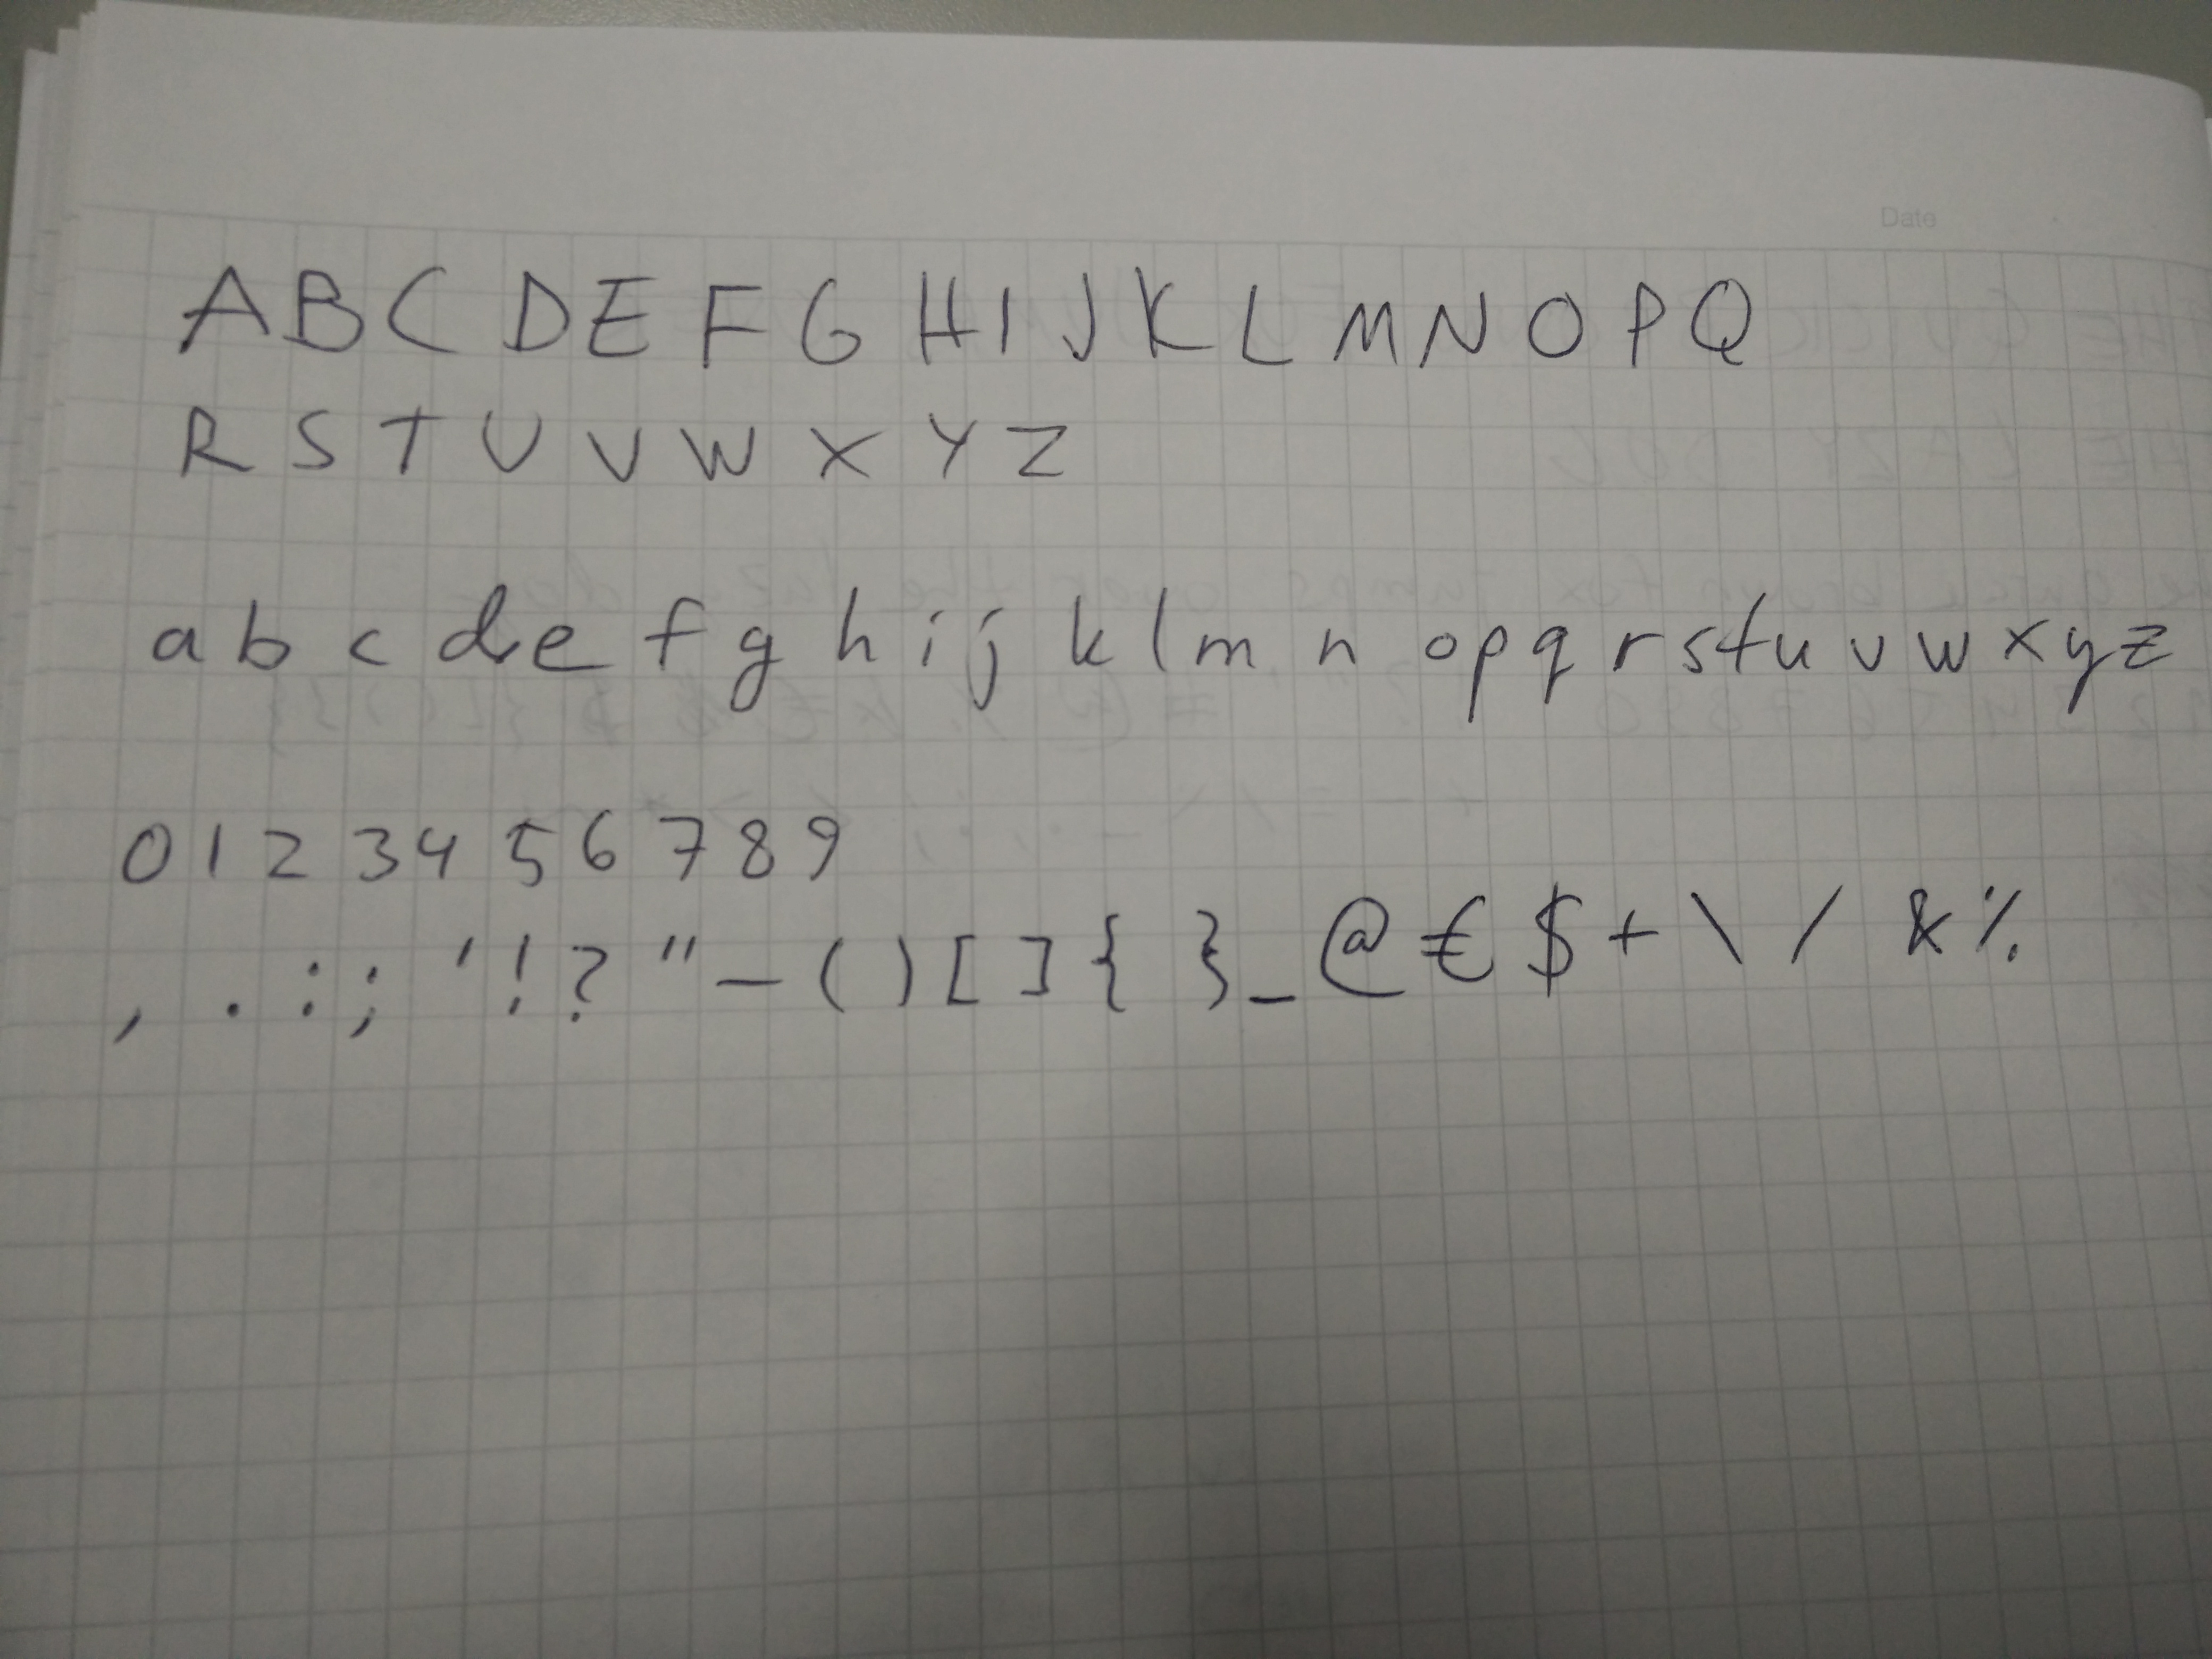 Date
A B C D E F G H I J K L M N O P Q
R S T U V W X Y Z
a b c d e f g h i j k l m n o p q r s t u v w x y z
0 1 2 3 4 5 6 7 8 9
, . : ; ' ! ? " - ( ) [ ] { } _ @ € $ + \ / & %